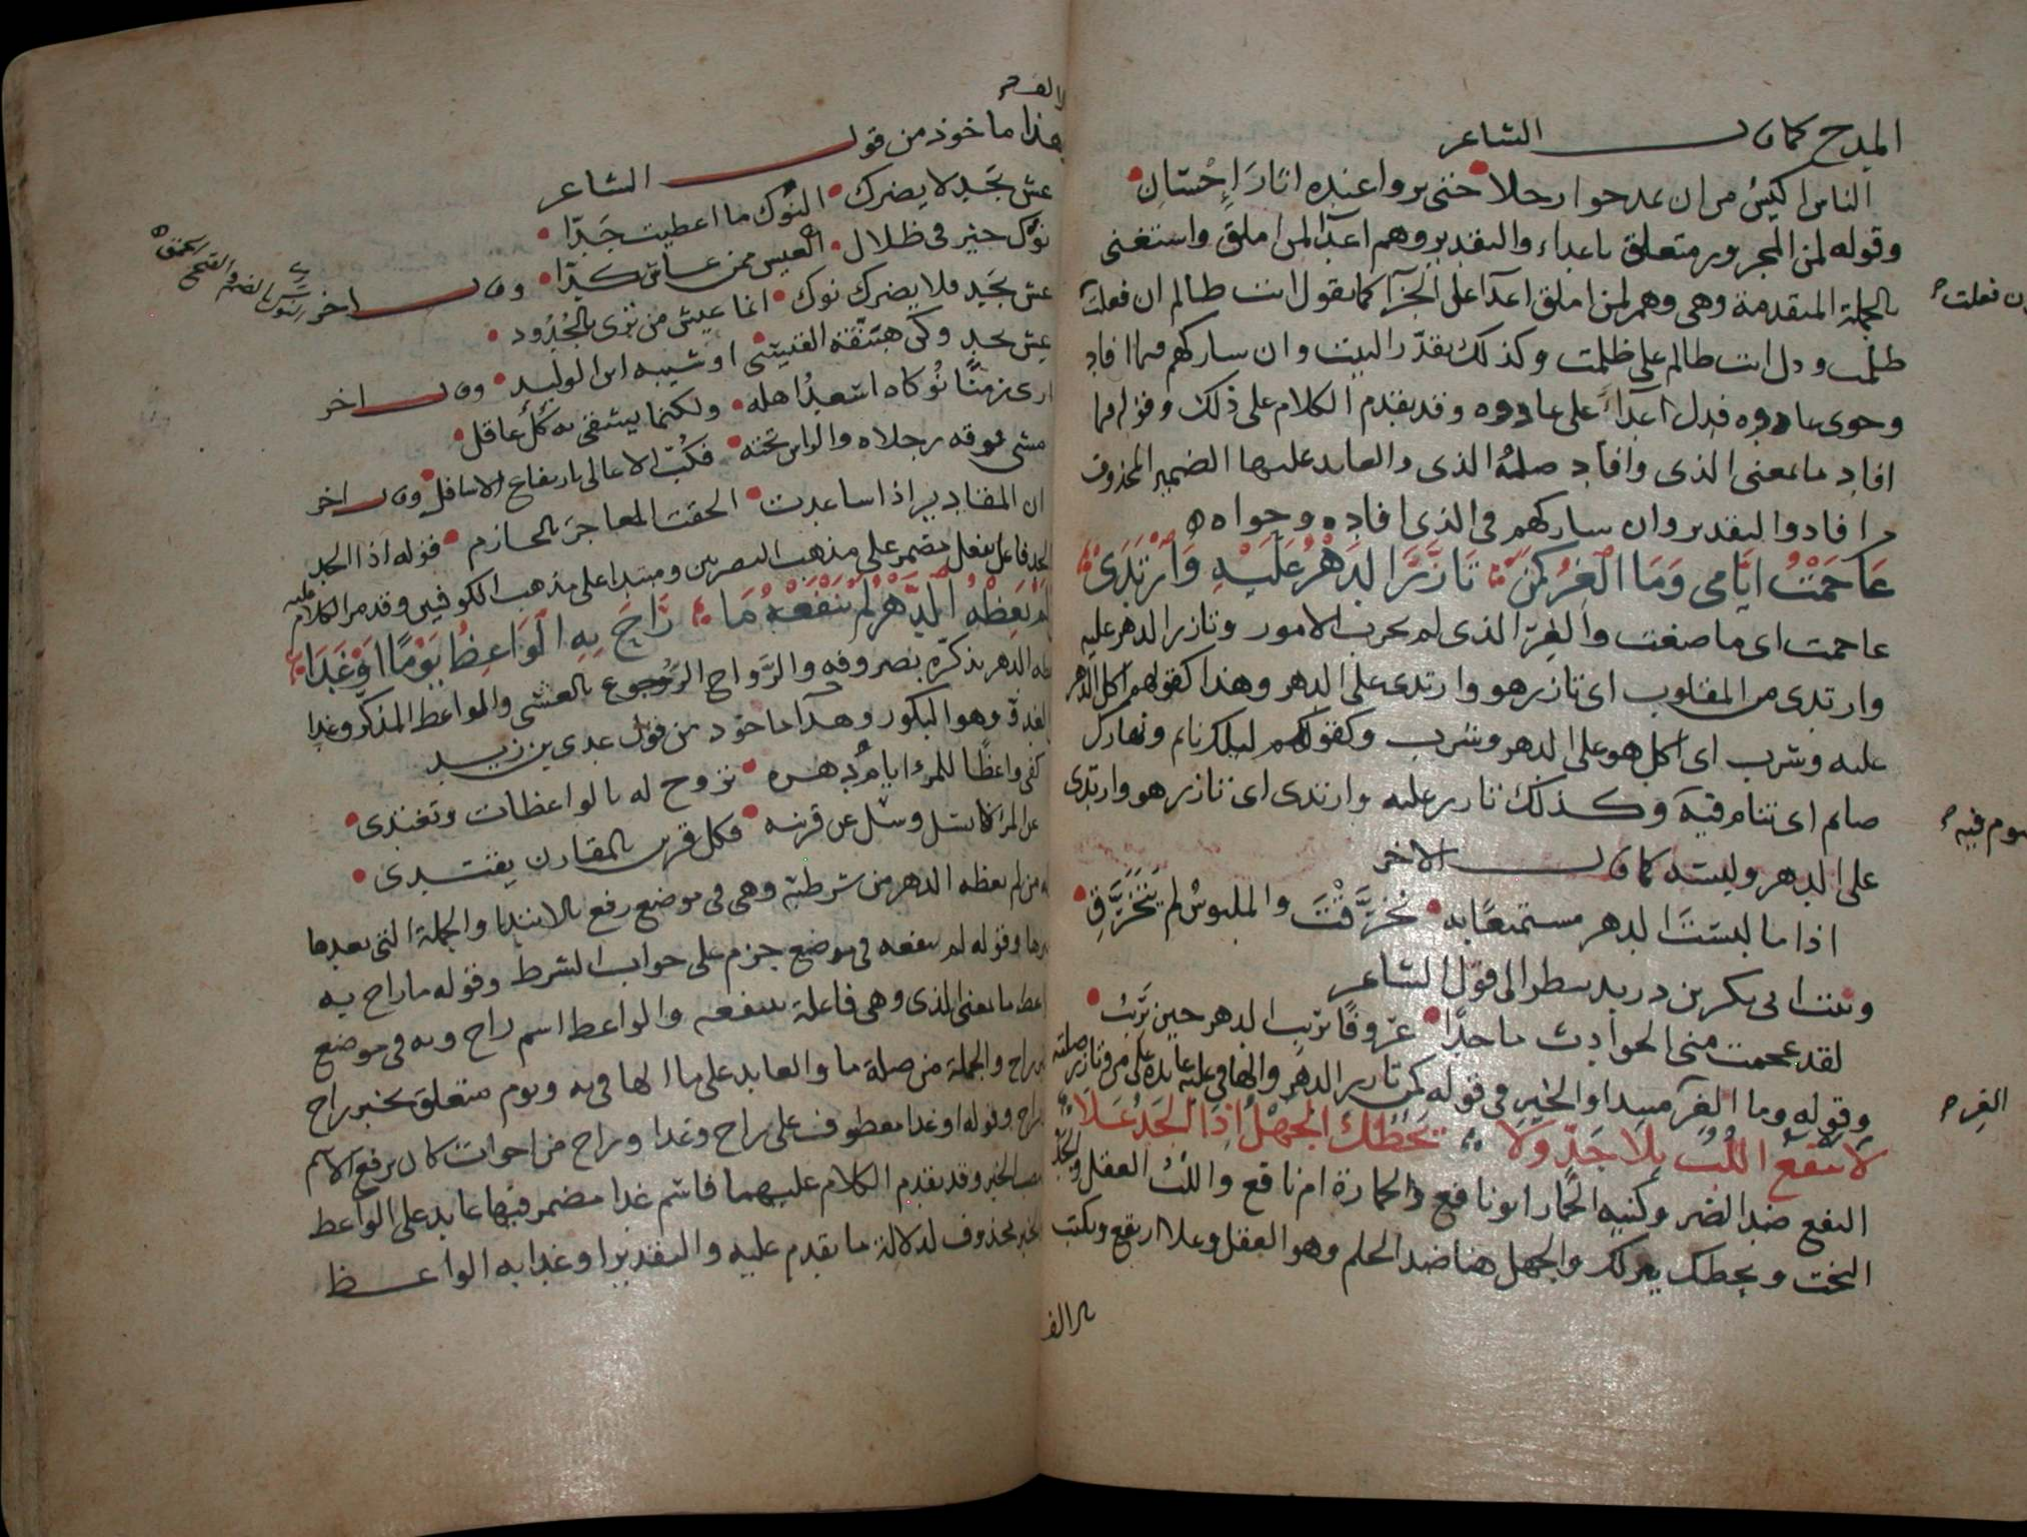 المدح كما قال الشاعر
الناس اكيس من ان يمدحوا رجلا حتى يروا عنده اثار احسان
وقوله لمن المجرور متعلق باعداء والتقدير وهم اعدآ لمن املق واستغنى
بالجملة المتقدمة وهى وهم لمن املق اعدآ على الجزآ كما يقول انت ظالم ان فعلت
ظلمت ودل انت ظالم على ظلمت وكذلك يقدّر البيت وان شاركهم فيما افاد
وحوى عادوه فدل اعدآء على عادوه وقد تقدم الكلام على ذلك وقوله فيما
افاد ما بمعنى الذى وافاد صلة الذى والعايد عليها الضمير المحذوف
من افاد والتقدير وان شاركهم فى الذى افاده وحواه
عَاجَمْتُ ايَّامى وَمَا الْغِرُّ كَمَنْ تَازَّرَ الدَهْرُ عَلَيْهِ وَارْتَدَى
عاجمت اى ماضغت والغِرّ الذى لم يجرب الامور وتازر الدهر عليه
وارتدى من المقلوب اى تازر هو وارتدى على الدهر وهذا كقولهم اكل الدهر
عليه وشرب اى اكل هو على الدهر وشرب وكقولهم ليلك نايم ونهارك
صايم اى تنام فيه وكذلك تازر عليه وارتدى اى تازر هو وارتدى
على الدهر ولبسه كما قال الاخر
اذا ما لبست الدهر مستمتعًا به تخرّقْتَ والملبوسُ لم يَتَخَرَّقِ
وبيت ابى بكر بن دريد ينظر الى قول الشاعر
لقد عجمت منى الحوادث ماجدًا عزوفًا بريب الدهر حين يَريب
وقوله وما الغر مبتدا والخبر فى قوله كمن تازر الدهر والها فى عليه عايدة على من وتازر صلته
لا يَنْفَعُ اللُّبُّ بِلا جَدٍّ وَلا يَحُطُّكَ الجَهْلُ اِذَا الجَدُّ عَلا
النفع ضد الضر وكنيه الحمار ابو نافع والحمارة ام نافع واللبّ العقل والجَدّ
البخت ويحطك ينزلك والجهل هنا ضد الحلم وهو العقل وعلا ارتفع ويكتب
بالالف
ان فعلت
يصوم فيه
الغِر
بالالف
وهذا ماخوذ من قول الشاعر
عش بجَدٍ لا يضرك النُوك ما اعطيت جَدّا
نوك خير فى ظلال العيس ممن عاش كدّا وقال اخر
النوك بالضم والفتح الحمق
عش بجَدٍ فلا يضرك نوك انما عيش من ترى بالجُدُود
عِش بجد وكن هبَنَّقة القيسى او شيبة ابن الوليد وقال اخر
ارى زمنًا نُوكاه اسعدُ اهله ولكنما يشقى به كلُّ عاقل
مشى فوقه رجلاه والراس تحته فكُبّ الاعالى بارتفاع الاسافل وقال اخر
ان المقادير اذا ساعدت الحقت العاجز بالحازم قوله اذا الجد
الجد فاعل بفعل مضمر على مذهب البصريين ومبتدا على مذهب الكوفيين وقد مر الكلام عليه
لَمْ يَعِظْهُ الدَّهْرُ لَمْ يَنْفَعْهُ مَا رَاحَ بِهِ الْوَاعِظُ يَوْمًا اوْ غَدَا
يعظه الدهر يذكّره بصروفه والرَّواح الرُّجوع بالعشى والواعظ المذكّر وغدا
الغدوّ وهو البكور وهذا ماخوذ من قول عدى بن زيد
كفى واعظًا للمرء ايامُ دهره تروح له بالواعظات وتغتدى
عن المرء لا تسل وسل عن قرينه فكل قرين بالمقارن يقتدى
من لم يعظه الدهر من شرطية وهى فى موضع رفع بالابتدا والجملة التى بعدها
خبرها وقوله لم ينفعه فى موضع جزم على جواب الشرط وقوله ما راح به
الواعظ ما بمعنى الذى وهى فاعلة ينفعه والواعظ اسم راح وبه فى موضع
خبر راح والجملة من صلة ما والعايد على ما الها فى به ويوم متعلق بخبر راح
راح وقوله او غدا معطوف على راح وغدا وراح من اخوات كان يرفع الاسم
وينصب الخبر وقد تقدم الكلام عليهما فاسم غدا مضمر فيها عايد على الواعظ
والخبر محذوف لدلالة ما تقدم عليه والتقدير او غدا به الواعظ